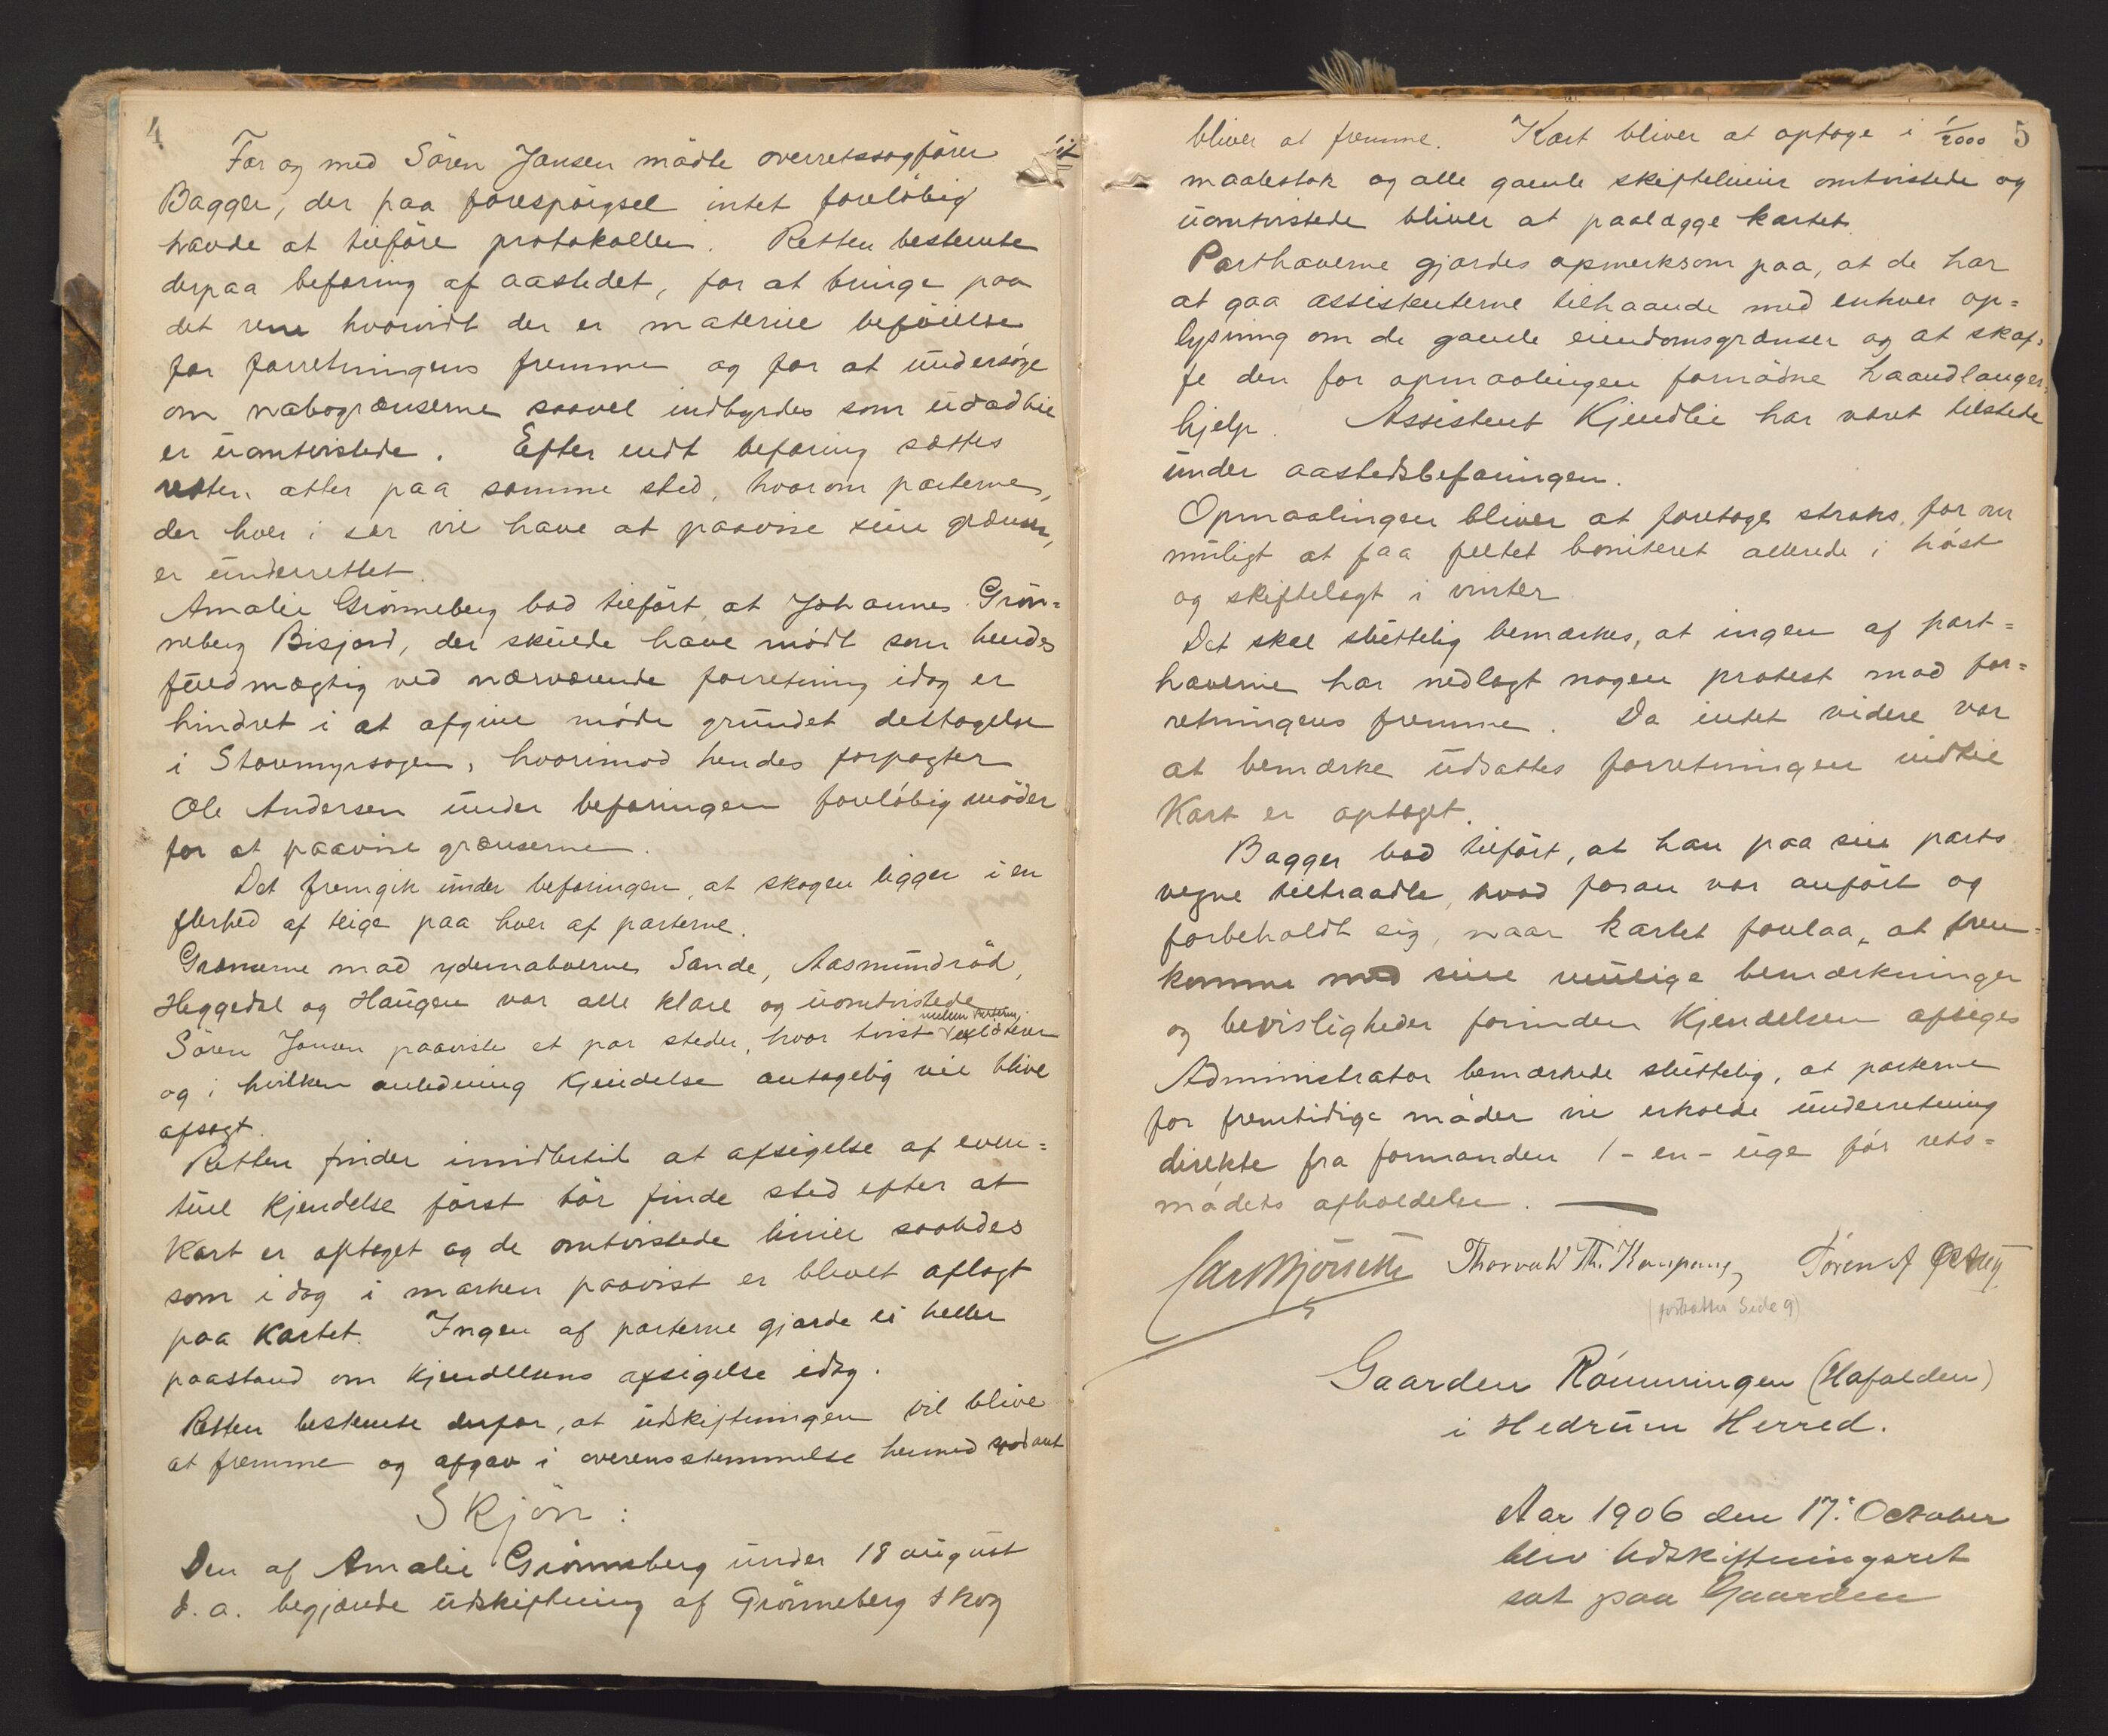 4
For og med Sören Jansen mödte overretssagförer
Bagger, der paa forespörgsel intet foreløbig
havde at tilföre protokollen. Retten bestemte
derpaa befaring af aastedet, for at bringe paa
det rene hvorvidt der er materiel beföielse
for forretningens fremme og for at undersöge
om nabogrænserne saavel indbyrdes som udadtil
er uomtvistede. Efter endt befaring sættes
retten atter paa samme sted, hvorom parterne,
der hver i sær vil have at paavise sine grænser,
er underrettet.
Amalie Grönneberg bad tilfört, at Johannes Grön=
neberg Bisjord, der skulde have mödt som hendes
fuldmægtig ved nærværende forretning idag er
hindret i at afgive möde grundet deltagelse
i Stormyrsagen, hvorimod hendes forpagter
Ole Andersen under befaringen foreløbig möder
for at paavise grænserne.
Det fremgik under befaringen, at skogen ligger i en
flerhed af teige paa hver af parterne.
Grænserne mod ydernaboerne Sande, Aasmundröd,
Heggedal og Haugen var alle klare og uomtvistede.
Sören Jansen paaviste et par steder, hvor tvist mellem parterne existerer
og i hvilken anledning Kjendelse antagelig vil blive
afsagt.
Retten finder imidlertid at afsigelse af even=
tuel Kjendelse först bör finde sted efter at
Kart er optaget og de omtvistede linier saaledes
som idag i marken paavist er blevet aflagt
paa Kartet. Ingen af parterne gjorde ei heller
paastand om Kjendelsens afsigelse idag.
Retten bestemte derfor, at udskiftningen vil blive
at fremme og afgav i overensstemmelse hermed sodant
Skjön:
Den af Amalie Grönneberg under 18 august
d. a. begjærede udskiftning af Grönneberg skog
5
bliver at fremme. Kart bliver at optage i 1/2000
maalestok og alle gamle skiftelinier omtvistede og
uomtvistede bliver at paalægge kartet.
Parthaverne gjordes opmerksom paa, at de har
at gaa assistenterne tilhaande med enhver op=
lysning om de gamle eiendomsgrænser og at skaf=
fe den for opmaalingen fornødne haandlanger=
hjelp. Assistent Kjendlie har været tilstede
under aastedsbefaringen.
Opmaalingen bliver at foretage straks, for om
muligt at faa feltet boniteret allerede i höst
og skiftelagt i vinter.
Det skal sluttelig bemærkes, at ingen af part=
haverne har nedlagt nogen protest mod for=
retningens fremme. Da intet videre var
at bemærke udsattes forretningen indtil
Kart er optaget.
Bagger bad tilfört, at han paa sin parts
vegne tiltraadte, hvad foran var anfört og
forbeholdt sig, naar kartet forelaa, at frem=
komme med sine mulige bemærkninger
og bevisligheder forinden Kjendelsen afsiges
Administrator bemærkede sluttelig, at parterne
for fremtidige möder vil erholde underretning
direkte fra formanden 1 - en - uge för rets=
mødets afholdelse.
Thorvald Th. Kaupang, Sören A
(fortsættes side 9)
Gaarden Römmingen (Hafalden)
i Hedrum Herred.
Aar 1906 den 17: October
blev Udskiftningsret
sat paa Gaarden